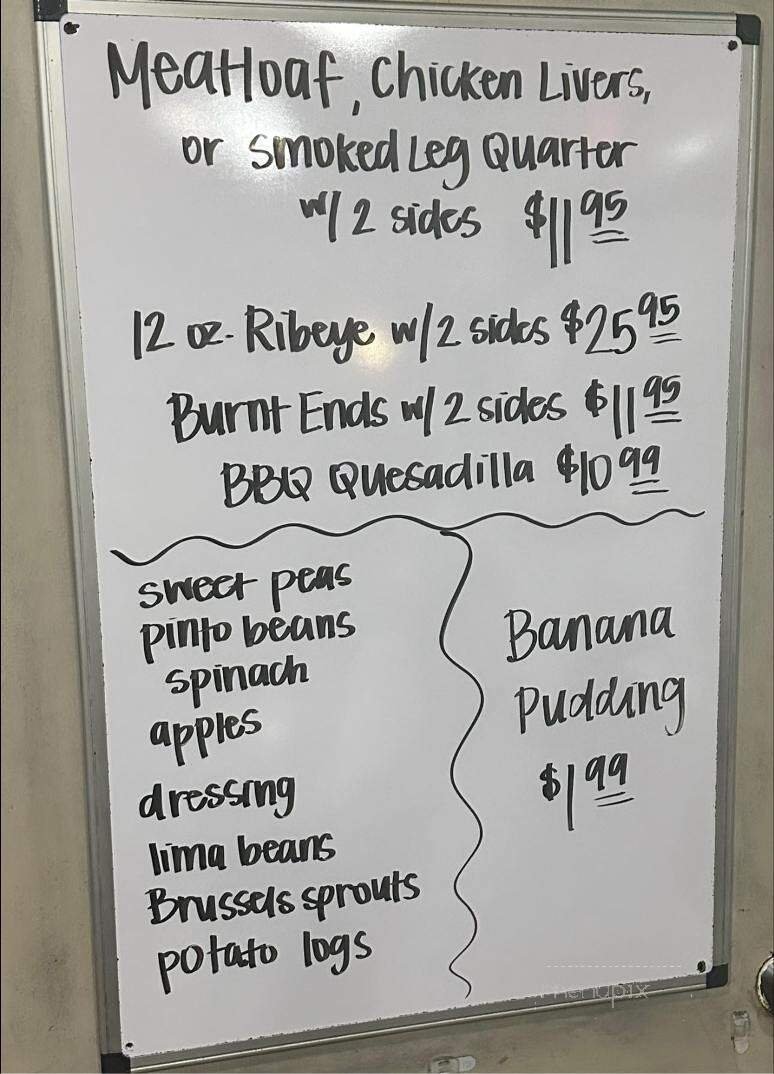 Meatloaf, Chicken Livers,
or Smoked Leg Quarter
w/ 2 sides $11 95
12 oz. Ribeye w/ 2 sides $25 95
Burnt Ends w/ 2 sides $11 95
BBQ Quesadilla $10 99
sweet peas
pinto beans
spinach
apples
dressing
lima beans
Brussels sprouts
potato logs
Banana
Pudding
$1 99
menupix